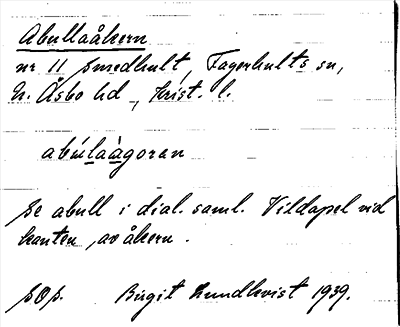 Abullaåkern
nr 11 Smedhult, Fagerhults sn,
N. Åsbo hd, Krist. l.
abúlaàgoran
Se abull i dial. saml. Vildapel vid
kanten av åkern.
Birgit Lundkvist 1939.